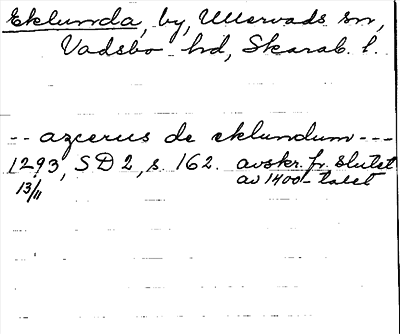 Eklunda, by, Ullervads sn,
Vadsbo hd, Skarab. l.
-- azcerus de eklundum ---
1293, SD 2, s. 162. avskr. fr. slutet
13/11 av 1400-talet